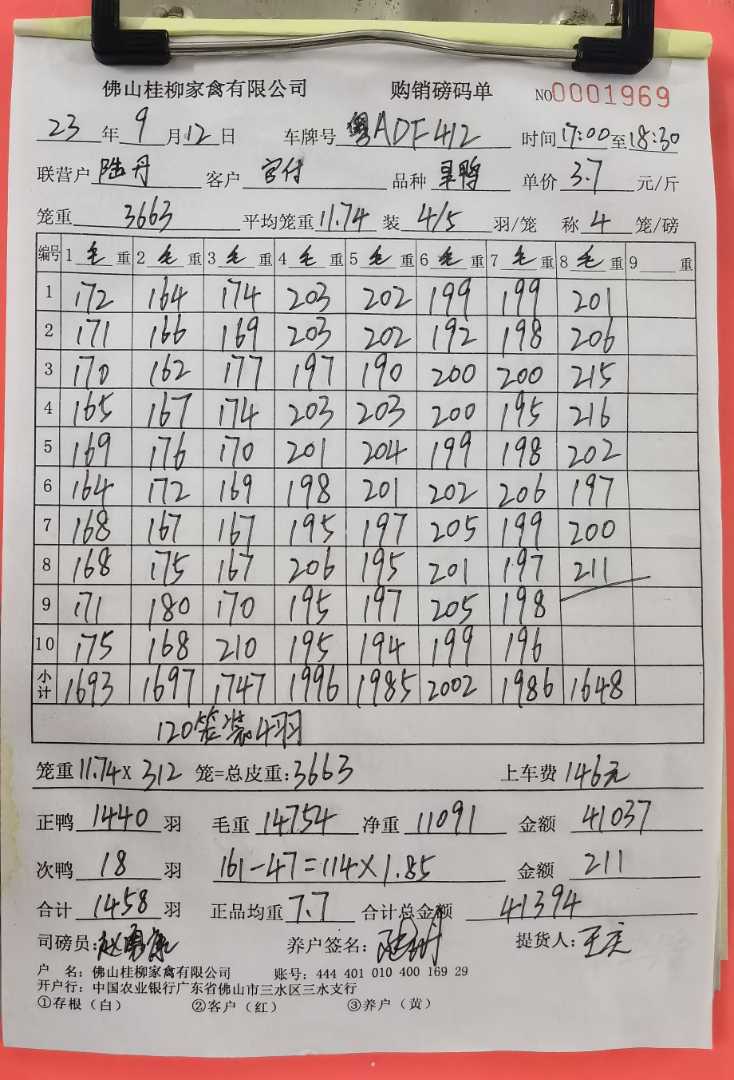 佛山桂柳家禽有限公司 购销磅码单 NO0001969
23年9月12日 车牌号粤ADF412 时间17:00至18:30
联营户陆丹 客户宫付 品种旱鸭 单价3.7元/斤
笼重3663 平均笼重11.74装4/5羽/笼 称4笼/磅
编号 1毛重 2毛重 3毛重 4毛重 5毛重 6毛重 7毛重 8毛重 9重
1 172 164 174 203 202 199 199 201
2 171 166 169 203 202 192 198 206
3 170 162 177 197 190 200 200 215
4 165 167 174 203 203 200 195 216
5 169 176 170 201 204 199 198 202
6 164 172 169 198 201 202 206 197
7 168 167 167 195 197 205 199 200
8 168 175 167 206 195 201 197 211
9 171 180 170 195 197 205 198
10 175 168 210 195 194 199 196
小计 1693 1697 1747 1996 1985 2002 1986 1648
120笼装4羽
笼重11.74×312笼=总皮重:3663 上车费146元
正鸭1440羽 毛重14754净重11091 金额41037
次鸭18羽 161-47=114×1.85 金额211
合计1458羽 正品均重7.7 合计总金额41394
司磅员: 养户签名: 提货人:
户 名:佛山桂柳家禽有限公司 账号:444 401 010 400 169 29
开户行:中国农业银行广东省佛山市三水区三水支行
①存根(白) ②客户(红) ③养户(黄)